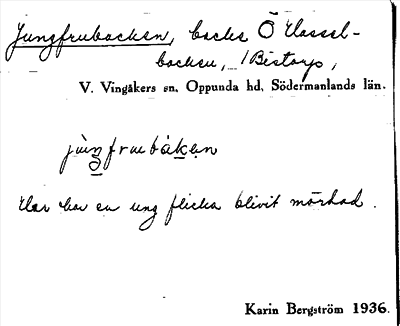 Jungfrubacken, backe Ö Hassel-
backen, /Bistorp,
V. Vingåkers sn, Oppunda hd, Södermanlands län.
jùngfrubákən
Här har en ung flicka blivit mördad.
Karin Bergström 1936.